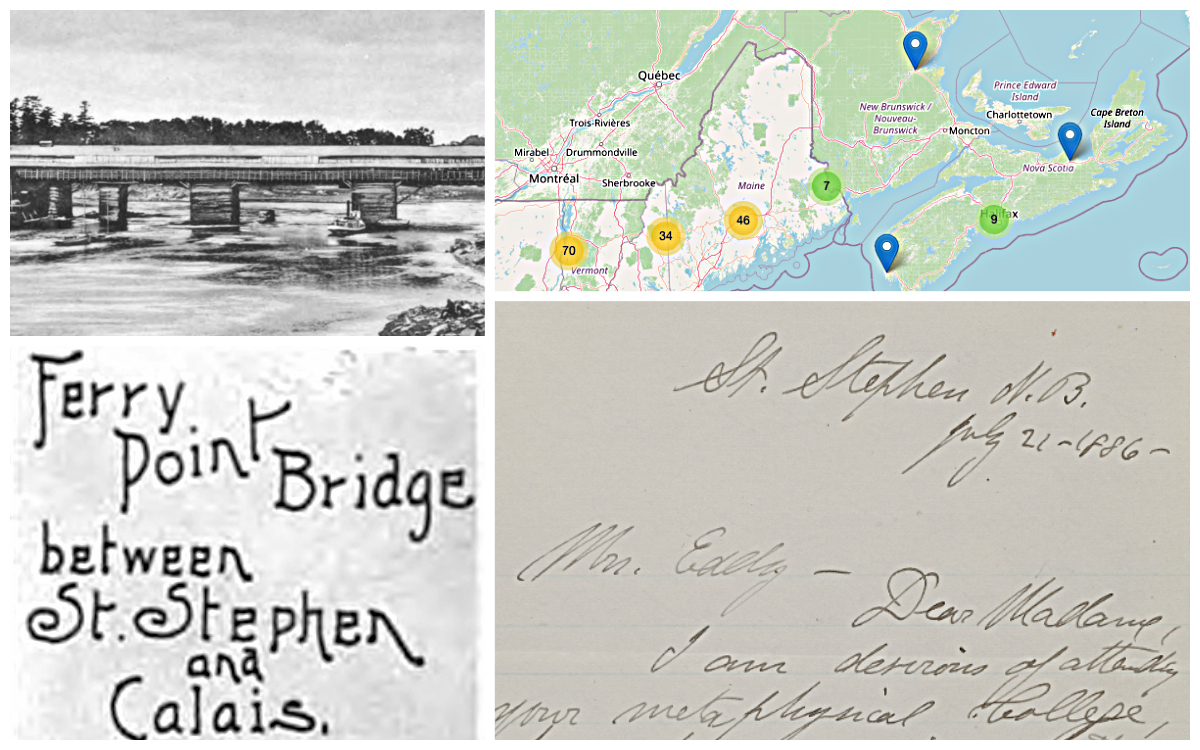 Québec
Trois-Rivières
Mirabel
Drummondville
Montréal
Sherbrooke
Vermont
Maine
New Brunswick /
Nouveau-
Brunswick
Moncton
Prince Edward
Island
Charlottetown
Cape Breton
Island
Nova Scotia
Halifax
70
34
46
7
9
Ferry
Point
Bridge
between
St. Stephen
and
Calais.
St. Stephen N.B.
July 21-1886-
Mrs. Eddy —
Dear Madame,
I am desirous of attending
your metaphysical College,